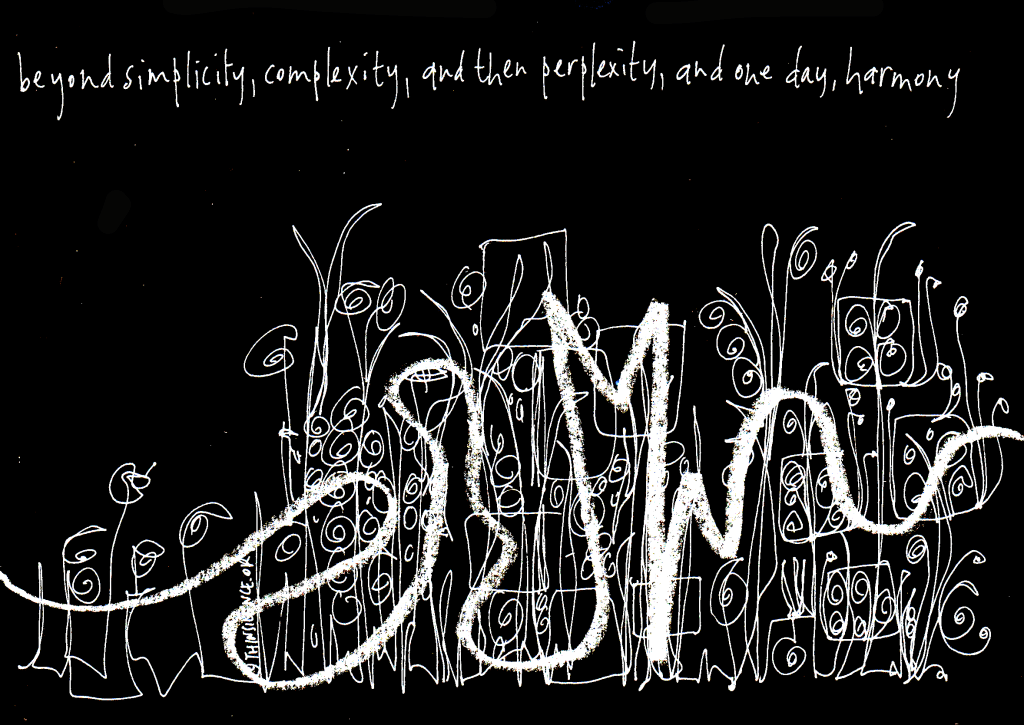 beyond simplicity, complexity, and then perplexity, and one day, harmony